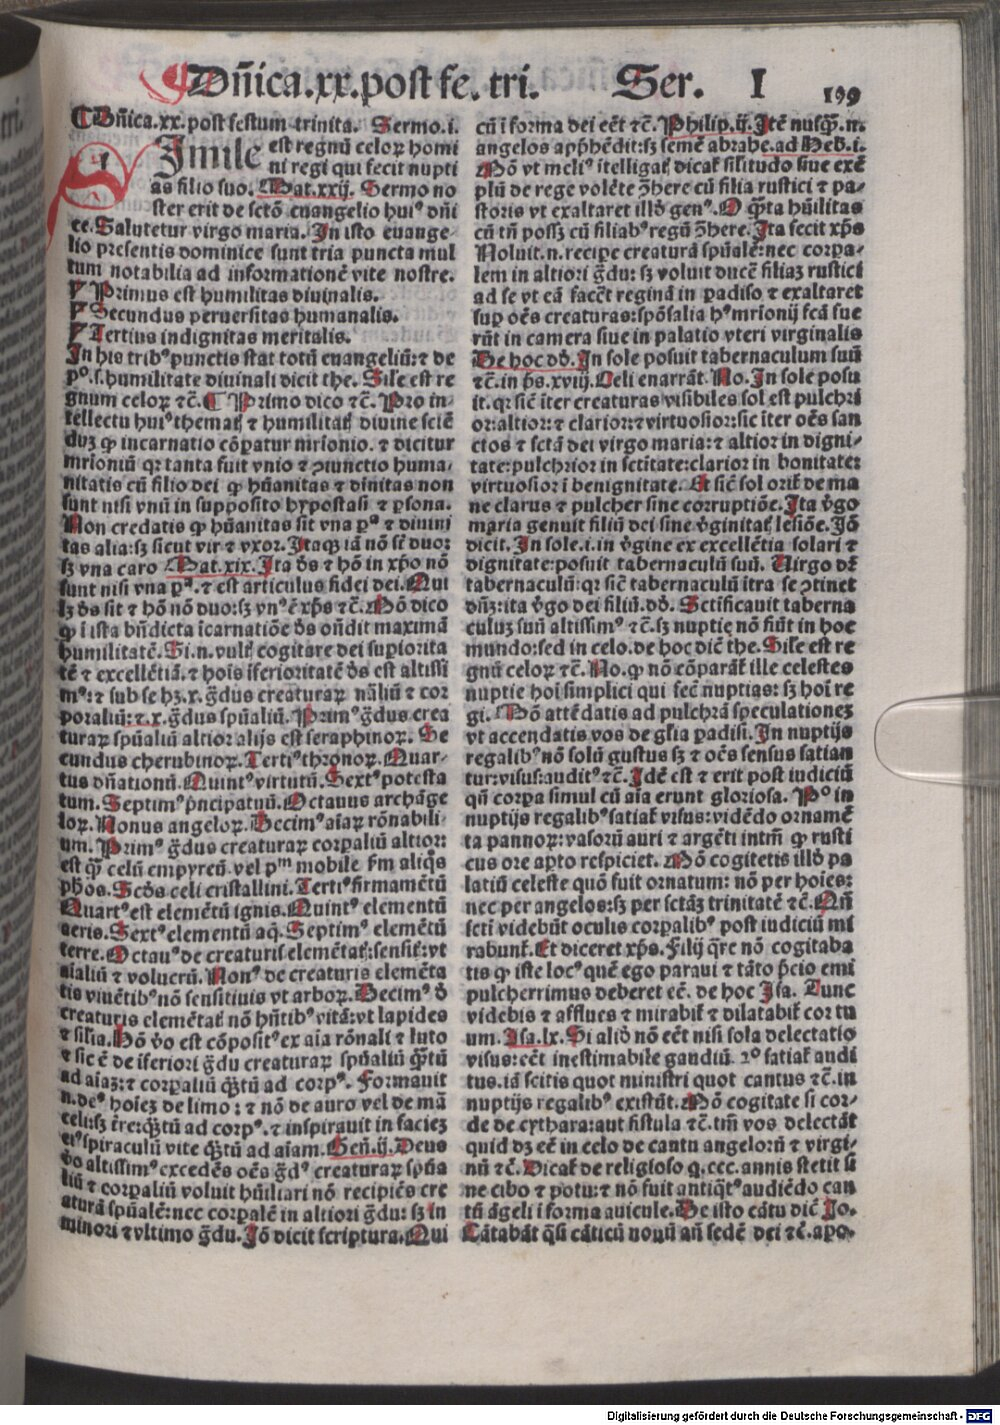 Dñica.xx.post fe. tri. Ser. I 199
¶Dñica.xx.post festum trinita. Sermo.i.
SImile est regnū celoꝝ homi
ni regi qui fecit nupti
as filio suo. Mat.xxij. Sermo no
ster erit de scto euangelio huiꝰ dñi
ce. Salutetur virgo maria. In isto euange-
lio presentis dominice sunt tria puncta mul
tum notabilia ad informationē vite nostre.
Primus est humilitas diuinalis.
Secundus peruersitas humanalis.
Tertius indignitas meritalis.
In his tribꝰ punctis stat totū euangeliū: ⁊ de
pº.s. humilitate diuinali dicit the. Sile est re
gnum celoꝝ ⁊c. ¶ Primo dico ⁊c. Pro in-
tellectu huiꝰ thematꝭ ⁊ humilitatꝭ diuine sciē
duꝫ ꝙ incarnatio cōparatur mrionio. ⁊ dicitur
mrioniū qꝛ tanta fuit vnio ⁊ ↄiunctio huma-
nitatis cū filio dei ꝙ hūanitas ⁊ diuitas non
sunt nisi vnū in supposito hypostasi ⁊ ꝑsona.
Non credatis ꝙ hūanitas sit vna pª ⁊ diuini
tas alia: sꝫ sicut vir ⁊ vxor. Itaqꝫ iā nō st̄ duo:
sꝫ vna caro Mat.xix. Ita ds ⁊ hō in xp̄o nō
sunt nisi vna pª. ⁊ est articulus fidei dei. Qui
lꝫ ds sit ⁊ hō nō duo: sꝫ vnꝰ ē xp̄s ⁊c. Mō dico
ꝙ i ista bñdicta īcarnatiōe ds oñdit maximā
humilitatē. Si.n. vultꝭ cogitare dei supiorita
tē ⁊ excellētiā. ⁊ hois iferioritatē ds est altissi
mꝰ: ⁊ sub se hꝫ.x. g̃dus creaturaꝝ nāliū ⁊ cor
poraliū: ⁊.x. g̃dus spūaliū. Primꝰ g̃dus crea
turaꝝ spūaliū altior alijs est seraphinoꝝ. Se
cundus cherubinoꝝ. Tertiꝰ thronoꝝ. Quar-
tus dñationū. Quintꝰ virtutū. Sextꝰ potesta
tum. Septimꝰ pncipatuū. Octauus archāge
loꝝ. Nonus angeloꝝ. Decimꝰ aiaꝝ rōnabili-
um. Primꝰ g̃dus creaturaꝝ corpaliū altior:
est qꝫ celū empyreū. vel pᵐ mobile fm aliqs
phos. Scds celi cristallini. Tertiꝰ firmamētū
Quartꝰ est elemētū ignis. Quintꝰ elementū
aeris. Sextꝰ elementū aq̃. Septimꝰ elemētū
terre. Octauꝰ de creaturis elemētatꝭ: sensitꝭ: vt
aialiū ⁊ volucrū. Nonꝰ de creaturis elemēta
tis viuētibꝰ nō sensitiuis vt arboꝝ. Decimꝰ d̄
creaturis elemētatꝭ nō hñtibꝰ vitā: vt lapides
⁊ silia. Hō vo est cōpositꝰ ex aia rōnali ⁊ luto
⁊ sic ē de iferiori g̃du creaturaꝝ spūaliū q̃tū
ad aiaꝫ: ⁊ corꝑaliū q̃tū ad corpꝰ. Formauit
n. deꝰ hoieꝫ de limo: ⁊ nō de auro vel de mā
celi: sꝫ tre: q̃tū ad corpꝰ. ⁊ inspirauit in facieꝫ
eiꝰ spiraculū vite q̃tū ad aiam. Geñ.ij. Deus
vo altissimꝰ excedēs oēs g̃dꝰ creaturaꝝ spūa
liū ⁊ corꝑaliū voluit hūiliari nō recipiēs cre
aturā spūalē: nec corꝑalē in altiori g̃du: sꝫ in
minori ⁊ vltimo g̃du. Jō dicit scriptura. Qui
cū i forma dei eēt ⁊c. Philip.ij. Itē nusq̃. n.
angelos apphēdit: sꝫ semē abrahe. ad Heb.i.
Mō vt meliꝰ itelligatꝭ dicat̄ silitudo siue exē
plū de rege volēte ↄ̄here cū filia rustici ⁊ pa-
storis vt exaltaret illō genꝰ. O q̃ta hūilitas
cū tñ possꝫ cū filiabꝰ regū ↄ̄here. Ita fecit xp̄s
Noluit.n. recipe creaturā spūalē: nec corpa-
lem in altiori g̃du: sꝫ voluit ducē filiaꝫ rustici
ad se vt eā facēt reginā in padiso ⁊ exaltaret
sup oēs creaturas: spōsalia hꝰ mrionij fcā sue
rūt in camera siue in palatio vteri virginalis
De hoc dd. In sole posuit tabernaculum suū
⁊c. in ps.xviij. Celi enarrāt. No. In sole posu
it. qꝛ sic iter creaturas visibiles sol est pulchri
or: altior: ⁊ clarior: ⁊ virtuosior: sic iter oēs san
ctos ⁊ sctā dei virgo maria: ⁊ altior in digni-
tate: pulchrior in sctitate: clarior in bonitate:
virtuosior i benignitate. Et sic sol orit̄ de ma
ne clarus ⁊ pulcher sine corruptiōe. Ita v̄go
maria genuit filiū dei sine v̄ginitatꝭ lesiōe. Jō
dicit. In sole.i. in v̄gine ex excellētia solari ⁊
dignitate: posuit tabernaculū suū. Virgo dr̄
tabernaculū: qꝛ sic tabernaculū itra se ↄtinet
dñꝫ: ita v̄go dei filiū. dd. Sctificauit taberna
culuꝫ suū altissimꝰ ⁊c. sꝫ nuptie nō fiūt in hoc
mundo: sed in celo. de hoc dic the. Sile est re
gnū celoꝝ ⁊c. No. ꝙ nō cōparat̄ ille celestes
nuptie hoi simplici qui fec nuptias: sꝫ hoi re
gi. Mō attēdatis ad pulchrā speculationeꝫ
vt accendatis vos de glia padisi. In nuptijs
regalibꝰ nō solū gustus sꝫ ⁊ oēs sensus satian
tur: visus: auditꝰ ⁊c. Idē est ⁊ erit post iudiciū
qñ corpa simul cū aia erunt gloriosa. Pº in
nuptijs regalibꝰ satiat̄ visus: vidēdo ornamē
ta pannoꝝ: vasoꝝ auri ⁊ argēti intm̄ ꝙ rusti
cus ore apto respiciet. Mō cogitetis illō pa
latiū celeste quō fuit ornatum: nō per hoies:
nec per angelos: sꝫ per sctāꝫ trinitatē ⁊c. Qñ
scti videbūt oculis corꝑalibꝰ post iudiciū mi
rabunt̄. Et diceret xp̄s. Filij q̄re nō cogitaba
tis ꝙ iste locꝰ quē ego paraui ⁊ tāto p̄cio emi
pulcherrimus deberet eē. de hoc Isa. Tunc
videbis ⁊ afflues ⁊ mirabit̄ ⁊ dilatabit̄ cor tu
um. Isa.lx. Si aliō nō eēt nisi sola delectatio
visus: eēt inestimabile gaudiū. 2º satiat̄ audi
tus. iā scitis quot ministri quot cantus ⁊c. in
nuptijs regalibꝰ existūt. Mō cogitate si cor-
de de cythara: aut fistula ⁊c. tm̄ vos delectāt
quid dꝫ eē in celo de cantu angeloꝝ ⁊ virgi-
nū ⁊c. Dicat̄ de religioso q̄.ccc. annis stetit si
ne cibo ⁊ potu: ⁊ nō fuit antiq̃tꝰ audiēdo can
tū āgeli i forma auicule. De isto cātu dic Jo.
Cātabāt q̄si cāticū nouū añ sedē dei ⁊c. apo.
Digitalisierung gefördert durch die Deutsche Forschungsgemeinschaft - DFG